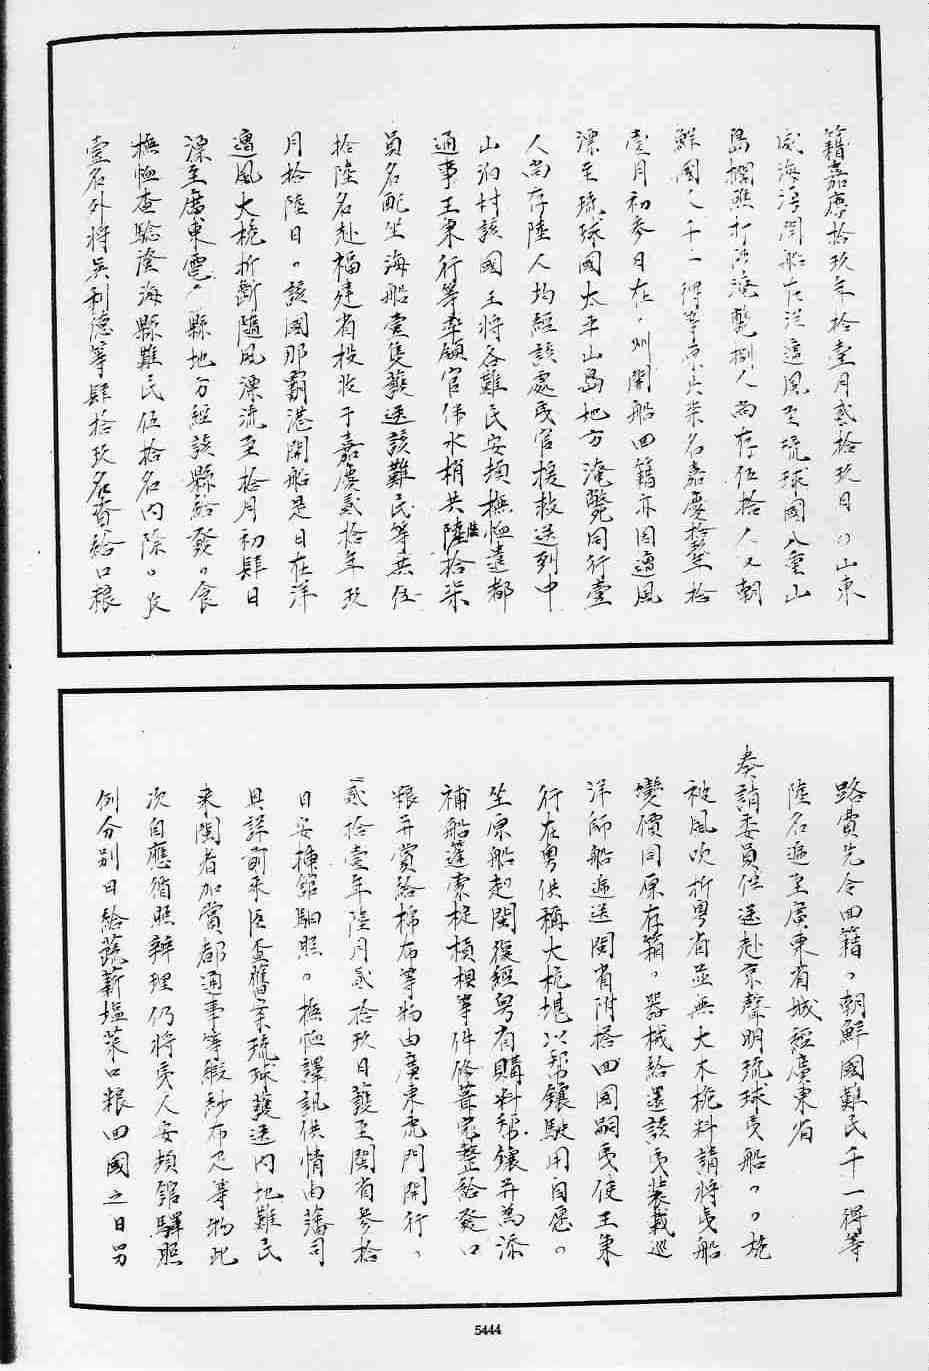 籍嘉慶拾玖年拾壹月貳拾玖日〇〇山東
威海活開船在洋遭風至琉球國八重山
島擱礁打沉淹斃捌人尚存伍拾人又朝
鮮國人千一得等原共柒名嘉慶拾玖年拾
壹月初參日在〃州開船回籍亦因遭風
漂至琉球國太平山島地方淹斃同行壹
人尚存陸人均經該處夷官援救送到中
山泊村該國王將各難民安頓撫恤遣都
通事王秉行等率領官伴水梢共陸拾柒
員名配坐海船壹隻護送該難民等共伍
拾陸名赴福建省投收于嘉慶貳拾年玖
月拾陸日〇該國那霸港開船是日在洋
遭風大桅折斷隨風漂流至拾月初肆日
漂至廣東電〃縣地方經該縣給發〇食
撫恤查驗澄海縣難民伍拾名內除〇故
壹名外將吳利德等肆拾玖名資給口糧
路費先令回籍〇朝鮮國難民千一得等
陸名遞至廣東省城經廣東省
奏請委員伴送赴京聲明琉球夷船〇〇桅
被風吹折粵省並無大木桅料請將夷船
變價同原存箱〇器械給還該夷裝載巡
洋師船遞送閩省附搭回國嗣夷使王秉
行在粵供稱大桅堪以帮鑲駛用自愿〇
坐原船起閩復經粵省購料帮鑲并為添
補船篷索椗槓椇等件修葺完整給發口
糧并賞給棉布等物由廣東虎門開行、
貳拾壹年陸月貳拾玖日護至閩省參拾
日安插館馹照〇撫恤譯訊供情由藩司
具詳前來臣查舊案琉球護送內地難民
來閩者加賞都通事等緞紗布疋等物此
次自應循照辦理仍將夷人安頓館驛照
例分別日給蔬薪塩菜口糧回國之日另
5444